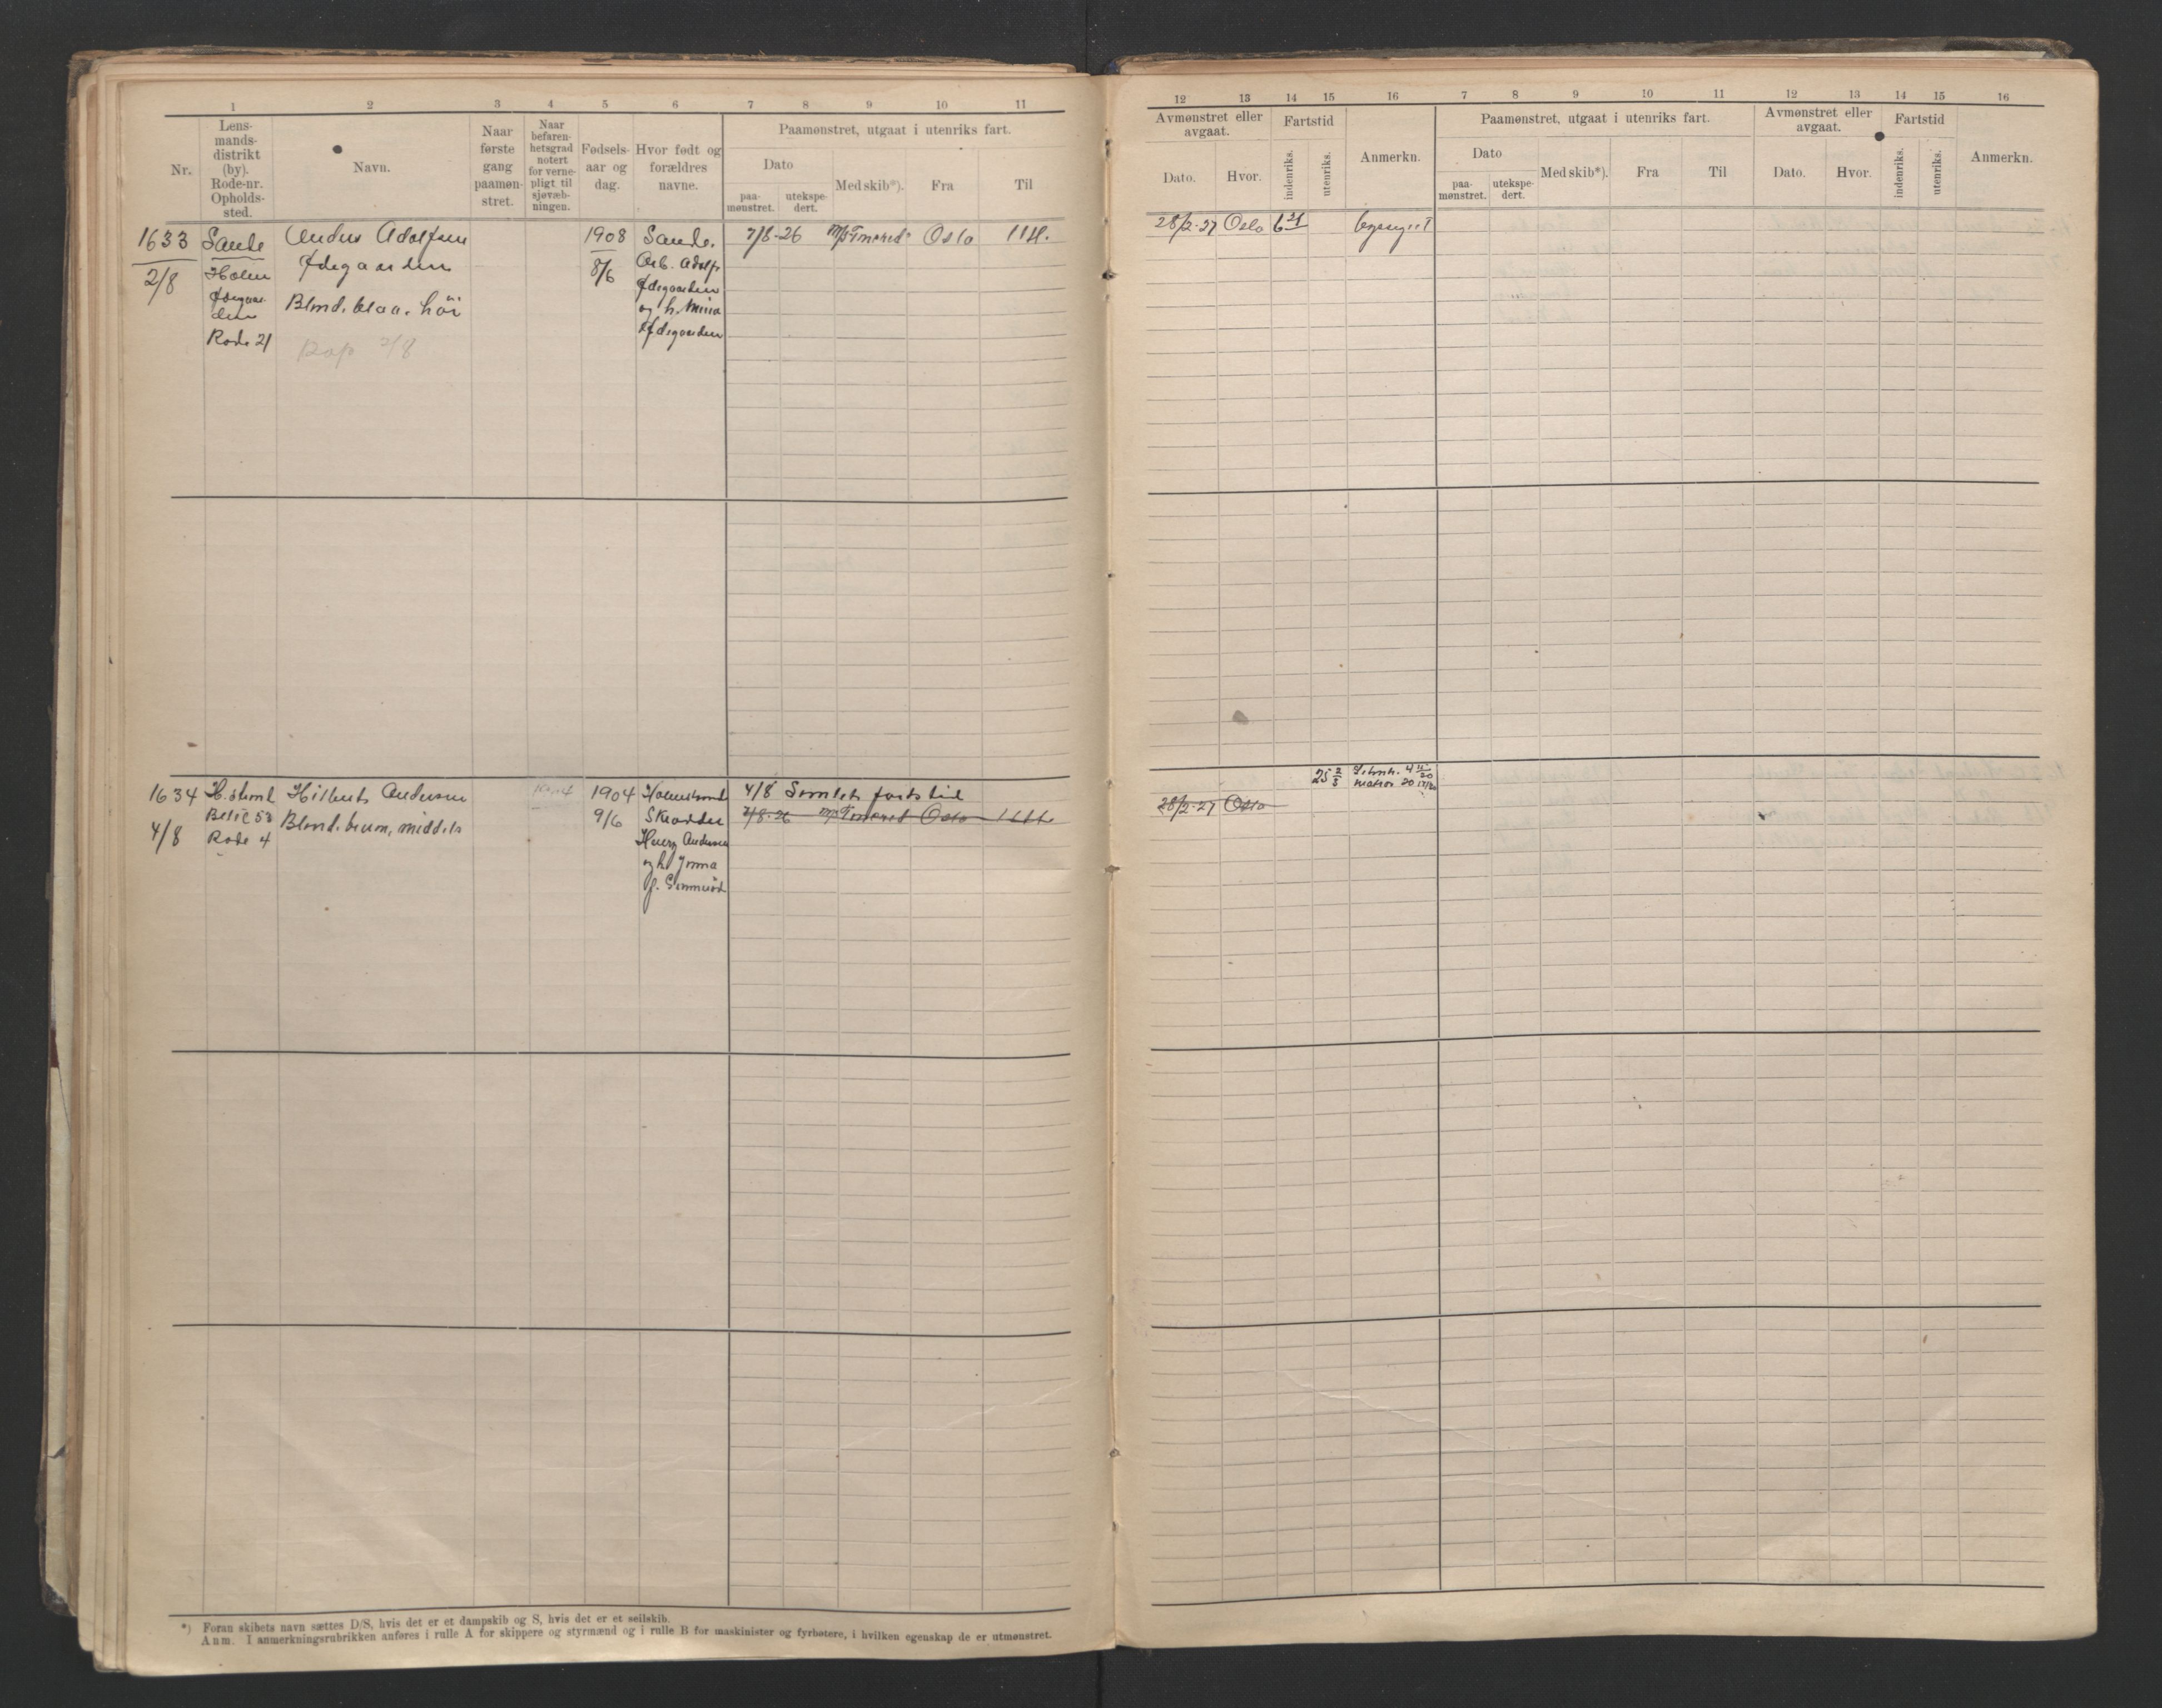 1 2 3 4 5 6 7 8 9 10 11
Nr.
Lens-
mands-
distrikt
(by).
Rode-nr.
Opholds-
sted.
Navn.
Naar
første
gang
paamøn-
stret.
Naar
befaren-
hetsgrad
notert
for verne-
pligt til
sjøvæb-
ningen.
Fødsels-
aar og
dag.
Hvor født og
forældres
navne.
Paamønstret, utgaat i utenriks fart.
Dato
paa-
mønstret.
utekspe-
dert.
Med skib*).
Fra
Til
1633 Sande Anders Adolfsen 1908 Sande. 7/8-26 Oslo
2/8 Holm Ødegaarden 8/6 Arb. Adolf
Ødegaar-
den
Blond, blaa, höi
Rode 21
Rap 2/8
Ødegaarden
og h. Mina
Ødegaarden
1634 H.strand Andersen 1904 Holmestrand 4/8 Samlet fartstid
Blond, brun, middels 9/6 7/8-26 Oslo
4/8 Rode 4
Henry Andersen
og h.
f.
*) Foran skibets navn sættes D/S, hvis det er et dampskib og S, hvis det er et seilskib.
Anm. I anmerkningsrubrikken anføres i rulle A for skippere og styrmænd og i rulle B for maskinister og fyrbøtere, i hvilken egenskap de er utmønstret.
12 13 14 15 16 7 8 9 10 11 12 13 14 15 16
Avmønstret eller
avgaat.
Dato.
Hvor.
Fartstid
indenriks.
utenriks.
Anmerkn.
Paamønstret, utgaat i utenriks fart.
Dato
paa-
mønstret.
utekspe-
dert.
Med skib*).
Fra
Til
Avmønstret eller
avgaat.
Dato.
Hvor.
Fartstid
indenriks.
utenriks.
Anmerkn.
28/2-27 Oslo 6 21
25 2/3
matros 20
28/2-27 Oslo